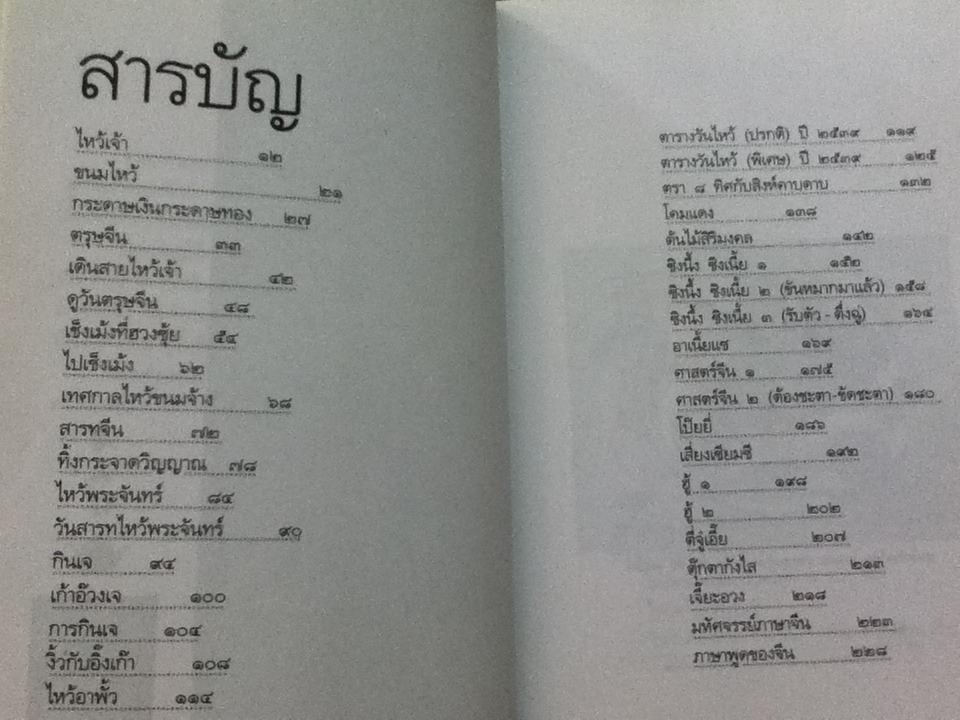 สารบัญ
ไหว้เจ้า ๑๒
ขนมไหว้ ๒๑
กระดาษเงินกระดาษทอง ๒๗
ตรุษจีน ๓๓
เดินสายไหว้เจ้า ๔๒
ดูวันตรุษจีน ๔๘
เช็งเม้งที่ฮวงซุ้ย ๕๔
ไปเช็งเม้ง ๖๒
เทศกาลไหว้ขนมจ้าง ๖๘
สารทจีน ๗๒
ทิ้งกระจาดวิญญาณ ๗๘
ไหว้พระจันทร์ ๘๔
วันสารทไหว้พระจันทร์ ๙๐
กินเจ ๙๔
เก้าอ๊วงเจ ๑๐๐
การกินเจ ๑๐๔
งิ้วกับอิ๊งเก๊า ๑๐๘
ไหว้อาพั้ว ๑๑๔
ตารางวันไหว้ (ปรกติ) ปี ๒๕๓๙ ๑๑๙
ตารางวันไหว้ (พิเศษ) ปี ๒๕๓๙ ๑๒๕
ตรา ๘ ทิศกับสิงห์คาบดาบ ๑๓๒
โคมแดง ๑๓๘
ต้นไม้สิริมงคล ๑๔๒
ซิงนึ้ง ซิงเนี้ย ๑ ๑๕๒
ซิงนึ้ง ซิงเนี้ย ๒ (ขันหมากมาแล้ว) ๑๕๘
ซิงนึ้ง ซิงเนี้ย ๓ (รับตัว - ตึ่งฉู่) ๑๖๔
อาเนี้ยแซ ๑๖๙
ศาสตร์จีน ๑ ๑๗๕
ศาสตร์จีน ๒ (ต้องชะตา-ขัดชะตา) ๑๘๐
โป๊ยยี่ ๑๘๖
เสี่ยงเซียมซี ๑๙๒
ฮู้ ๑ ๑๙๘
ฮู้ ๒ ๒๐๒
ตี่จู่เอี๊ย ๒๐๗
ตุ๊กตากังไส ๒๑๓
เจี๊ยะอวง ๒๑๘
มหัศจรรย์ภาษาจีน ๒๒๓
ภาษาพูดของจีน ๒๒๘